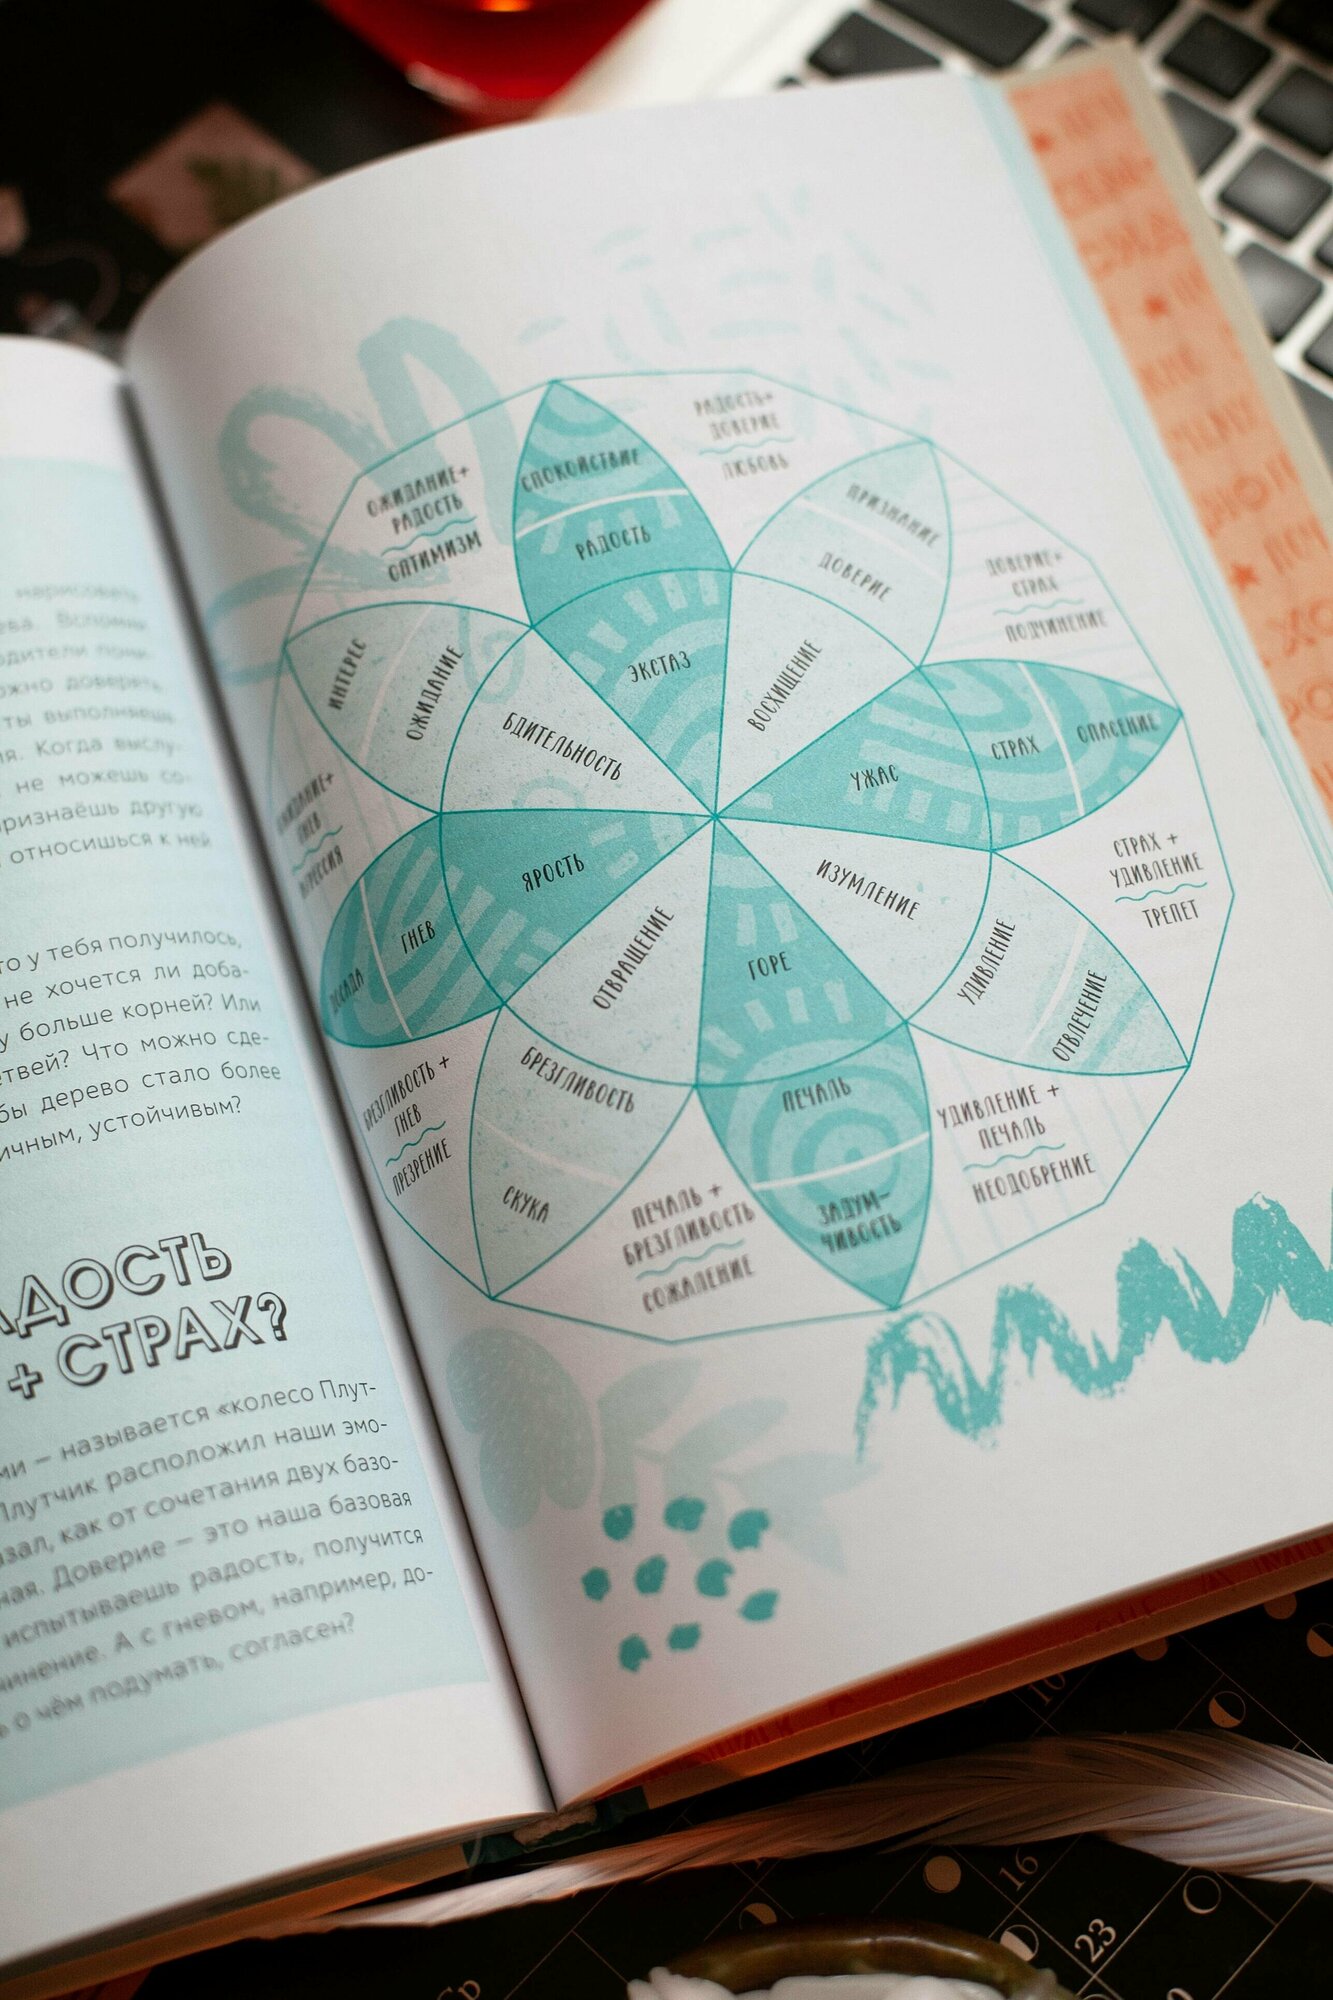 нарисовать
ева. Вспомни
одители пони-
ожно доверять
ты выполняешь
ия. Когда выслу-
не можешь со-
признаёшь другую
относишься к ней
то у тебя получилось,
не хочется ли доба-
у больше корней? Или
етвей? Что можно сде-
бы дерево стало более
ичным, устойчивым?
АДОСТЬ
+ СТРАХ?
ми — называется «колесо Плут-
Плутчик расположил наши эмо-
азал, как от сочетания двух базо-
ная. Доверие — это наша базовая
испытываешь радость, получится
чинение. А с гневом, например, до-
ь о чём подумать, согласен?
РАДОСТЬ+
ДОВЕРИЕ
ЛЮБОВЬ
ОЖИДАНИЕ+
РАДОСТЬ
ОПТИМИЗМ
СПОКОЙСТВИЕ
РАДОСТЬ
ЭКСТАЗ
ПРИЗНАНИЕ
ДОВЕРИЕ
ВОСХИЩЕНИЕ
ДОВЕРИЕ+
СТРАХ
ПОДЧИНЕНИЕ
ИНТЕРЕС
ОЖИДАНИЕ
БДИТЕЛЬНОСТЬ
УЖАС
СТРАХ
ОПАСЕНИЕ
ОЖИДАНИЕ+
ГНЕВ
АГРЕССИЯ
ДОСАДА
ГНЕВ
ЯРОСТЬ
ИЗУМЛЕНИЕ
УДИВЛЕНИЕ
ОТВЛЕЧЕНИЕ
СТРАХ +
УДИВЛЕНИЕ
ТРЕПЕТ
ОТВРАЩЕНИЕ
БРЕЗГЛИВОСТЬ
СКУКА
ГОРЕ
ПЕЧАЛЬ
ЗАДУМ-
ЧИВОСТЬ
БРЕЗГЛИВОСТЬ +
ГНЕВ
ПРЕЗРЕНИЕ
ПЕЧАЛЬ +
БРЕЗГЛИВОСТЬ
СОЖАЛЕНИЕ
УДИВЛЕНИЕ +
ПЕЧАЛЬ
НЕОДОБРЕНИЕ
10
16
23
Ср